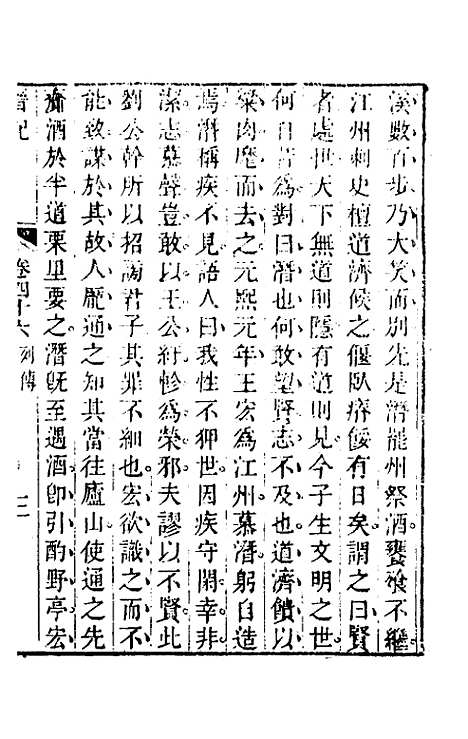 溪數百步乃大笑而別先是潛罷州祭酒饔飧不繼
江州刺史檀道濟候之偃臥瘠餒有日矣謂之曰賢
者處世天下無道則隱有道則見今子生文明之世
何自苦爲對曰潛也何敢望賢志不及也道濟饋以
粱肉麾而去之元熙元年王宏爲江州慕潛躬自造
焉潛稱疾不見語人曰我性不狎世因疾守閑幸非
潔志慕聲豈敢以王公紆軫爲榮邪夫謬以不賢此
劉公幹所以招謗君子其罪不細也宏欲識之而不
能致謀於其故人龐通之知其當往廬山使通之先
齎酒於半道栗里要之潛旣至遇酒卽引酌野亭宏
晉記
卷四十六
列傳
三